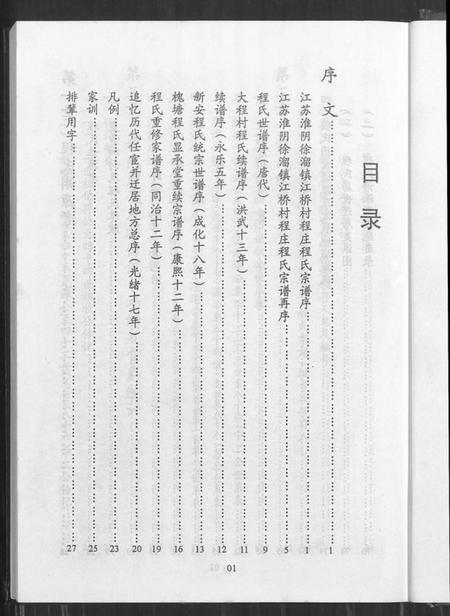 目录
序文……1
江苏淮阴徐溜镇江桥村程庄程氏宗谱序……1
江苏淮阴徐溜镇江桥村程庄程氏宗谱再序……5
程氏世谱序(唐代)……9
大程村程氏续谱序(洪武十三年)……11
续谱序(永乐五年)……12
新安程氏統宗世谱序(成化十八年)……13
槐塘程氏显承堂重续宗谱序(康熙十二年)……16
程氏重修家谱序(同治十二年)……19
追忆历代任宦并迁居地方总序(光绪十七年)……20
凡例……23
家训……25
排辈用字……27
01